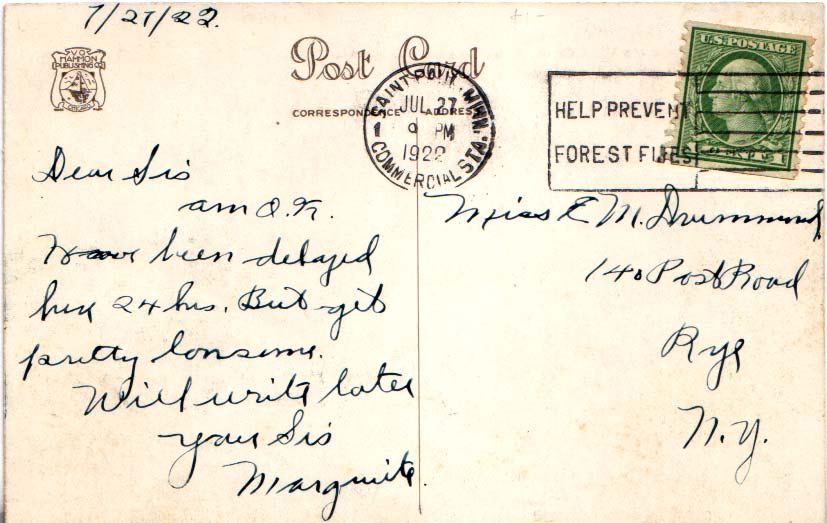 7/27/22.
$1-
V.O.
HAMMON
PUBLISHING CO
Post Card
CORRESPONDENCE ADDRESS
SAINT PAUL, MINN.
JUL 27
9 PM
1922
1
COMMERCIAL STA.
HELP PREVENT
FOREST FIRES
U.S. POSTAGE
1 CENT 1
Dear Sis
am O.K.
Have been delayed
here 24 hrs. But get
pretty lonsome.
Will write later
your Sis
Marguite
Miss E M. Drummond
140 Post Road
Rye
N.Y.